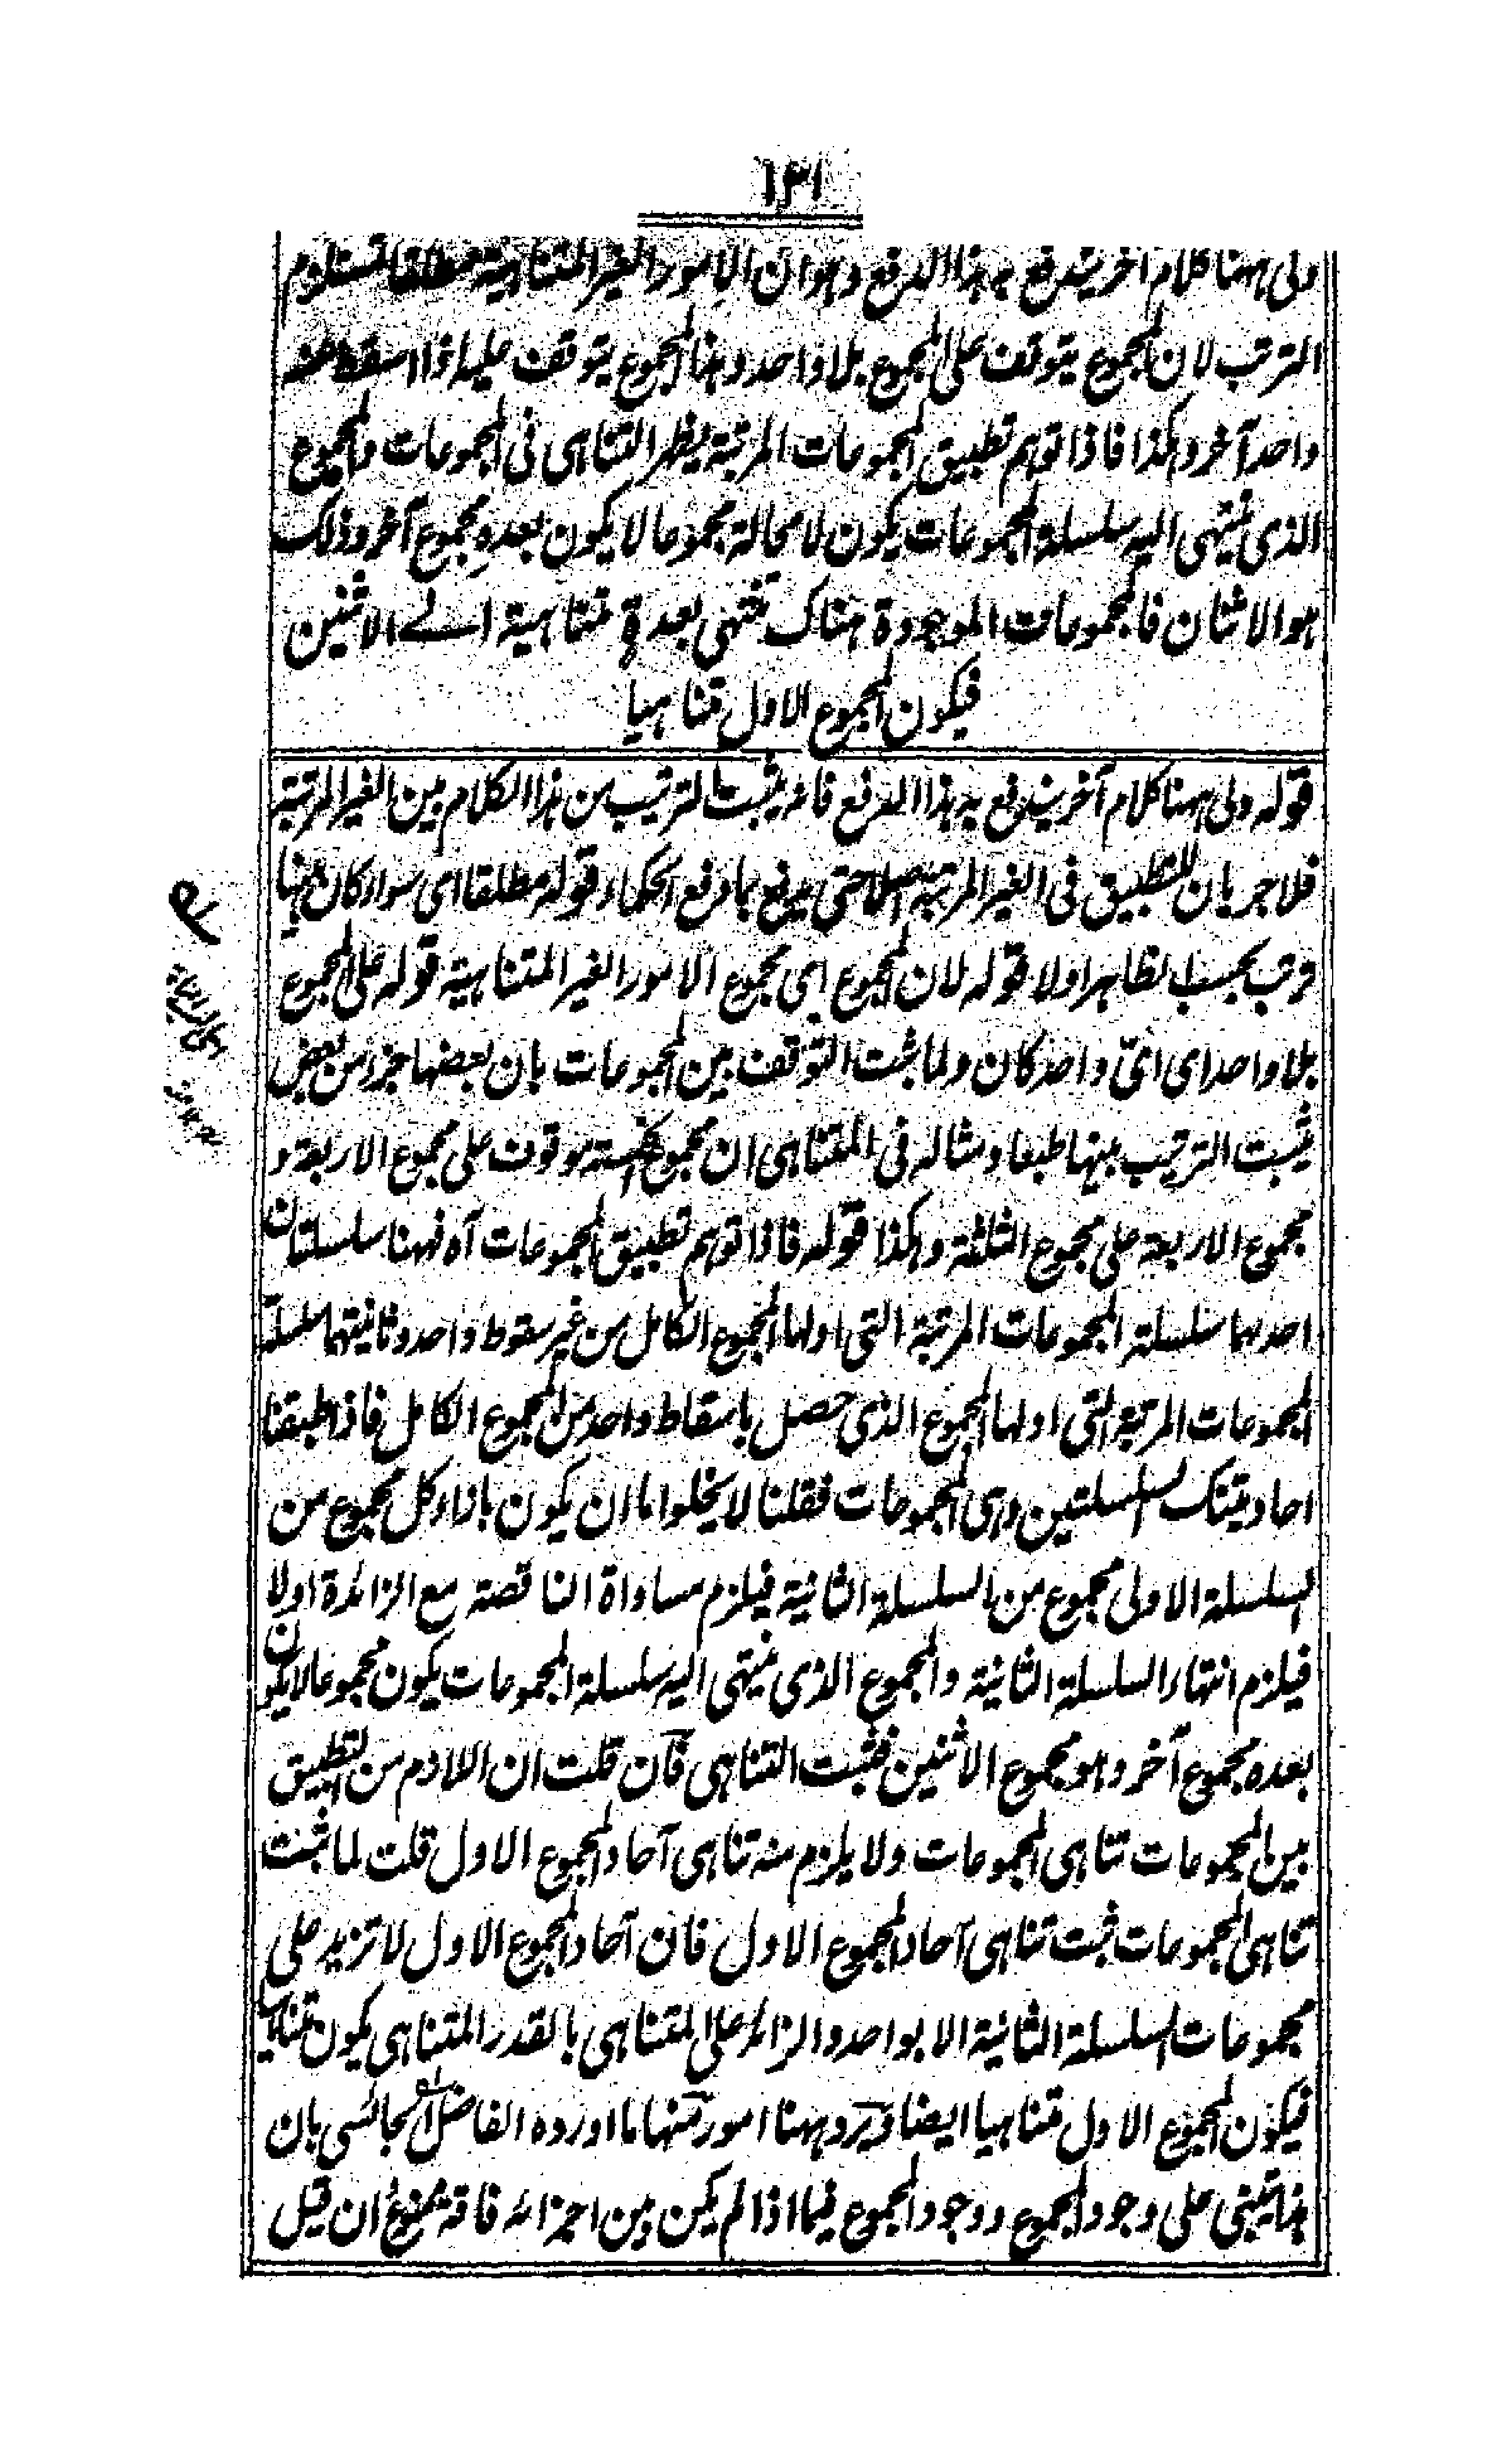 ١٣١
ولى ههنا كلام آخر يندفع به هذا الدفع وهو ان الامور الغير المتناهية مطلقا تستلزم
الترتب لان المجموع يتوقف على المجموع بلا واحد وهذا المجموع يتوقف عليه اذا اسقط عنه
واحد آخر وهكذا فاذا توهم تطبيق المجموعات المرتبة يظهر التناهى فى المجموعات والمجموع
الذى ينتهى اليه سلسلة المجموعات يكون لا محالة مجموعا لا يكون بعده مجموع آخر وذلك
هو الاثنان فالمجموعات الموجودة هناك تنتهى بعدة متناهية الے الاثنين
فيكون المجموع الاول متناهيا
قوله ولى ههنا كلام آخر يندفع به هذا الدفع فانه يثبت الترتيب من هذا الكلام بين الغير المرتبة
فلا جريان للتطبيق فى الغير المرتبة اصلا حتى يدفع بما دفع الحكماء قوله مطلقا اى سواء كان بينها
ترتب بحسب الظاهر اولا قوله لان المجموع اى مجموع الامور الغير المتناهية قوله على المجموع
بلا واحد اى اىّ واحد كان ولما ثبت التوقف بين المجموعات بان بعضها جزء من بعض
يثبت الترتيب بينها طبعا ومثاله فى المتناهى ان مجموع الخمسة موقوف على مجموع الاربعة و
مجموع الاربعة على مجموع الثلثة وهكذا قوله فاذا توهم تطبيق المجموعات آه فههنا سلسلتان
احدهما سلسلة المجموعات المرتبة التى اولها المجموع الكامل من غير سقوط واحد وثانيتهما سلسلة
المجموعات المرتبة التى اولها المجموع الذى حصل باسقاط واحد من المجموع الكامل فاذا طبقنا
احاد تينك السلسلتين وهى المجموعات فقلنا لا يخلو اما ان يكون بازاء كل مجموع من
السلسلة الاولى مجموع من السلسلة الثانية فيلزم مساواة الناقصة مع الزائدة اولا
فيلزم انتهاء السلسلة الثانية والمجموع الذى ينتهى اليه سلسلة المجموعات يكون مجموعا لا يكون
بعده مجموع آخر وهو مجموع الاثنين فثبت التناهى فان قلت ان اللازم من التطبيق
بين المجموعات تناهى المجموعات ولا يلزم منه تناهى آحاد المجموع الاول قلت لما ثبت
تناهى المجموعات ثبت تناهى آحاد المجموع الاول فان آحاد المجموع الاول لا تزيد على
مجموعات السلسلة الثانية الا بواحد والزائد على المتناهى بالقدر المتناهى يكون متناهيا
فيكون المجموع الاول متناهيا ايضا ويرد ههنا امور منها ما اورده الفاضل السجالسى بان
هذا يبتنى على وجود المجموع ووجود المجموع فيما اذا لم يكن بين اجزائه فاقة ممنوع ان قيل